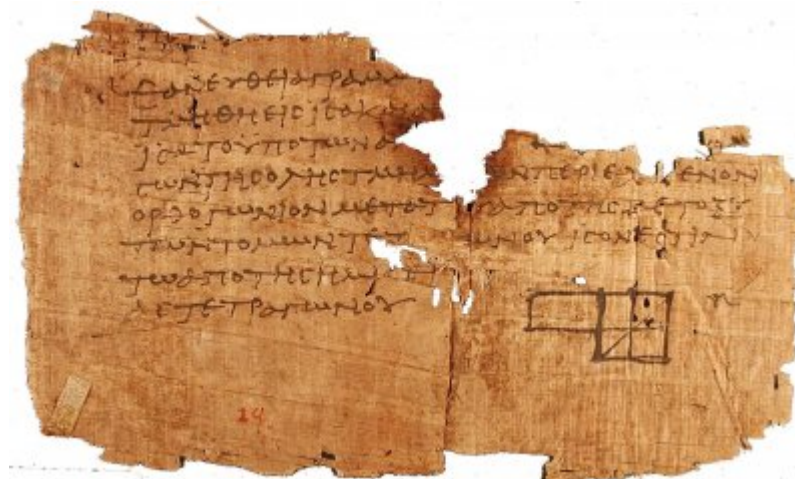 ΕΑΝ ΕΥΘΕΙΑ ΓΡΑΜΜ
ΤΜΗΘΗ ΕΙϹ ΙϹΑ ΚΑΙ Α
ΙϹΑ ΤΟ ΥΠΟ ΤΩΝ Α
ϹΩΝ ΤΗϹ ΟΛΗϹ ΤΜΗΜ ΩΝ ΠΕΡΙΕΧ ΕΝΟΝ
ΟΡΘΟΓΩΝΙΟΝ ΜΕΤΑ ΤΟΥ ΑΠΟ ΤΗϹ ΜΕΤΟΞΥ
ΤΩΝ ΤΟΜΩΝ ΤΕΤ ΓΩΝΟΥ ΙϹΟΝ ΕϹΤΙΝ
ΤΩ ΑΠΟ ΤΗϹ ΗΜΙϹΕΙ
ΑϹ ΤΕΤΡΑΓΩΝΟΥ